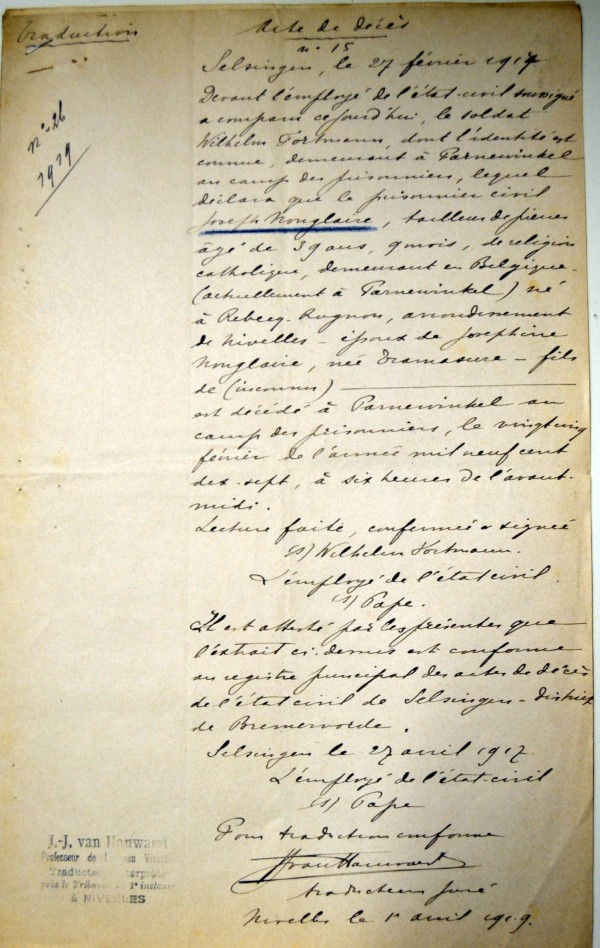 Traduction
Acte de décès
n° 15
Selsingen, le 27 février 1917
n° 26
1919
Devant l'employé de l'état-civil soussigné
a comparu ce jourd'hui, le soldat
Wilhelm Fortmann, dont l'identité est
connue, demeurant à Parnewinkel
au camp des prisonniers, lequel
déclara que le prisonnier civil
Joseph Nonglaire, tailleur de pierres
âgé de 39 ans, 9 mois, de religion
catholique, demeurant en Belgique -
(actuellement à Parnewinkel) né
à Rebecq-Rognon, arrondissement
de Nivelles - époux de Joséphine
Nonglaire, née Tramasure - fils
de (inconnus)
est décédé à Parnewinkel au
camp des prisonniers, le vingt cinq
février de l'année mil neuf cent
dix-sept, à six heures de l'avant-
midi.
Lecture faite, confirmée & signée
(s) Wilhelm Fortmann.
L'employé de l'état civil.
(s) Pape.
Il est attesté par les présentes que
l'extrait ci-dessus est conforme
au registre principal des actes de décès
de l'état civil de Selsingen - district
de Bremervorde.
Selsingen le 27 avril 1917.
L'employé de l'état-civil
(s) Pape
Pour traduction conforme
traducteur juré
Nivelles le 1er avril 1919.
J.-J. van Hauwaert
Professeur de Langues Vivantes
Traducteur Interprète
près le Tribunal de 1e instance
à NIVELLES